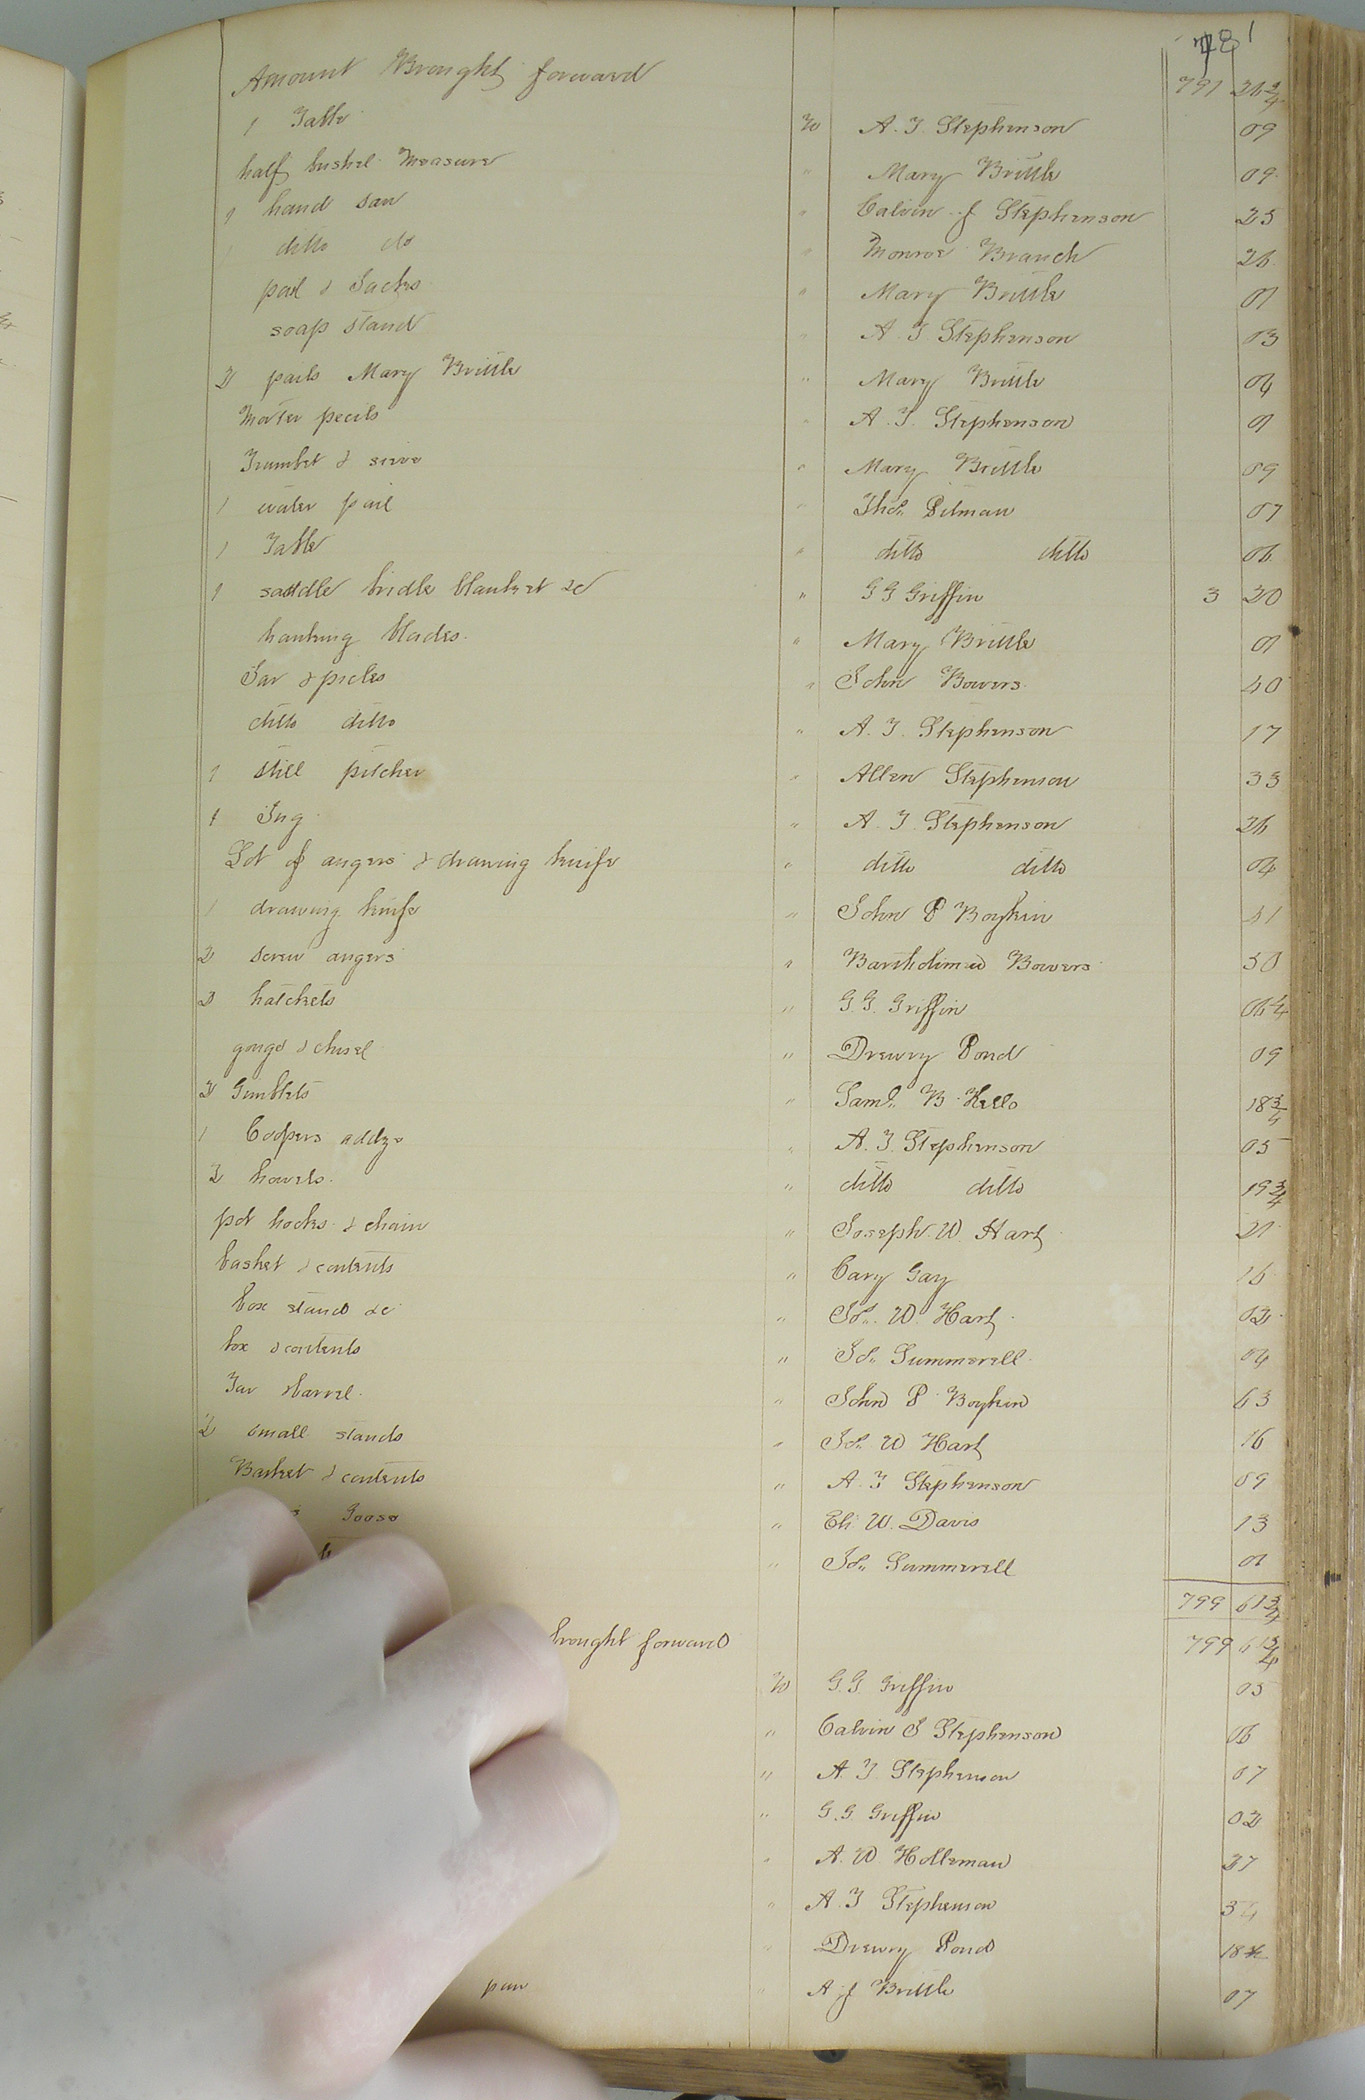 781
Amount Brought forward 791 26 3/4
1 Table to A. T. Stephenson 09
half bushel Measure " Mary Brittle 09
1 hand Saw " Calvin J Stephenson 25
1 ditto do " Monroe Branch 26
pail & Sacks " Mary Brittle 01
soap stand " A T Stephenson 03
2 pails Mary Brittle " Mary Brittle 04
Morter pecils " A. T. Stephenson 01
Trumbet & sieve " Mary Brittle 09
1 water pail " Thos. Pitman 07
1 Table " ditto ditto 06
1 saddle bridle blanket &c " G G Griffin 3 20
hanking blades " Mary Brittle 01
Jar & picles " John Bowers 40
ditto ditto " A. T. Stephenson 17
1 still pitcher " Allen Stephenson 33
1 Jug " A. T. Stephenson 26
Lot of augers & drawing knife " ditto ditto 04
1 drawing knife " John P Boykin 41
2 screw augers " Bartholimed Bowers 50
2 hatchets " G. G. Griffin 06 1/4
gouge & chisel " Drewry Pond 09
2 Gimblets " Saml. B. Kello 18 3/4
1 Coopers addze " A. T. Stephenson 05
2 howels " ditto ditto 19 3/4
pot hooks & chain " Joseph W. Hart 21
basket & contents " Cary Gay 16
box stand &c " Jos. W. Hart 02
box & contents " Jos. Summerell 04
Tar barrel " John P Boykin 63
2 small stands " Jos. W Hart 16
Basket & contents " A. T Stephenson 09
Goose " Eli W. Davis 13
" Jos. Summerell 01
799 61 3/4
brought forward 799 61 3/4
to G. G Griffin 05
" Calvin J Stephenson 06
" A. T. Stephenson 07
" G. G Griffin 02
" A. W Holleman 37
" A. T Stephenson 34
" Drewry Pond 18
pan " A J Brittle 07